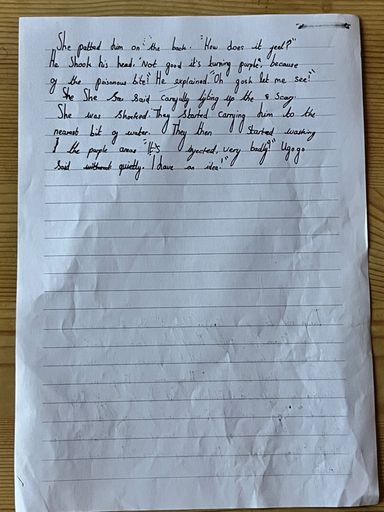 She patted him on the back. "How does it feel?"
He Shook his head. "Not good it's turning purple. because
of the poisonous bite!" He explained. "Oh gosh let me see!"
She She said carefully lifting up the scar.
She was Shocked. They started carrying him to the
nearest bit of water. They then started washing
the purple areas "It's injected, very badly!" Ugogo
Said quietly. "I have an idea!"